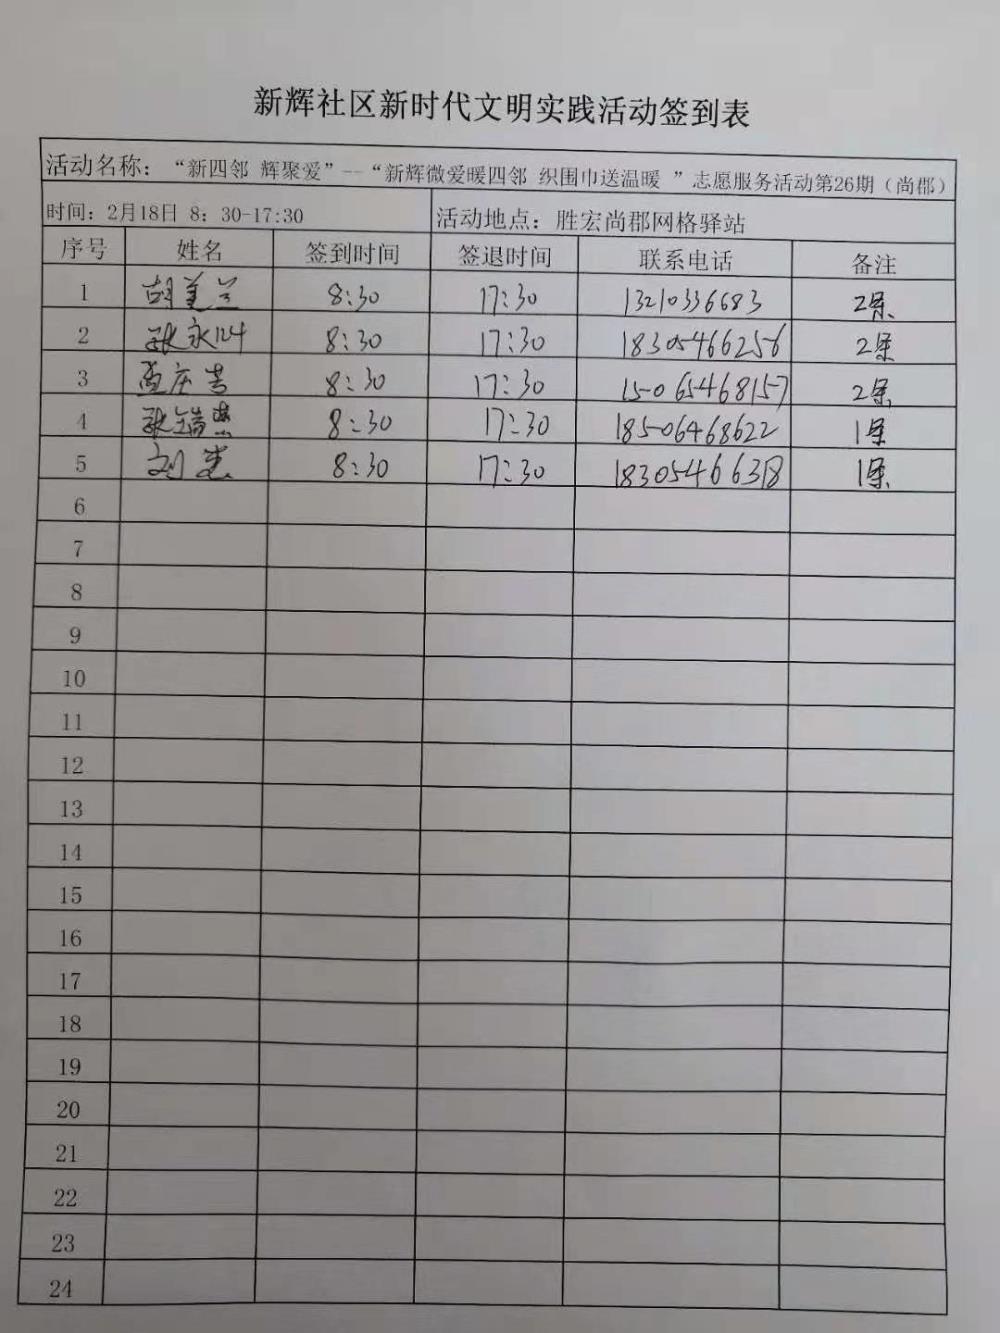 新辉社区新时代文明实践活动签到表
活动名称：“新四邻 辉聚爱”--“新辉微爱暖四邻 织围巾送温暖 ”志愿服务活动第26期（尚郡）
时间：2月18日 8：30-17:30 活动地点：胜宏尚郡网格驿站
序号 姓名 签到时间 签退时间 联系电话 备注
1 胡美兰 8:30 17:30 13210336683 2条
2 张永 8:30 17:30 18305466256 2条
3 孟庄 8:30 17:30 15065468157 2条
4 张 8:30 17:30 18506468622 1条
5 刘 8:30 17:30 18305466318 1条
6
7
8
9
10
11
12
13
14
15
16
17
18
19
20
21
22
23
24